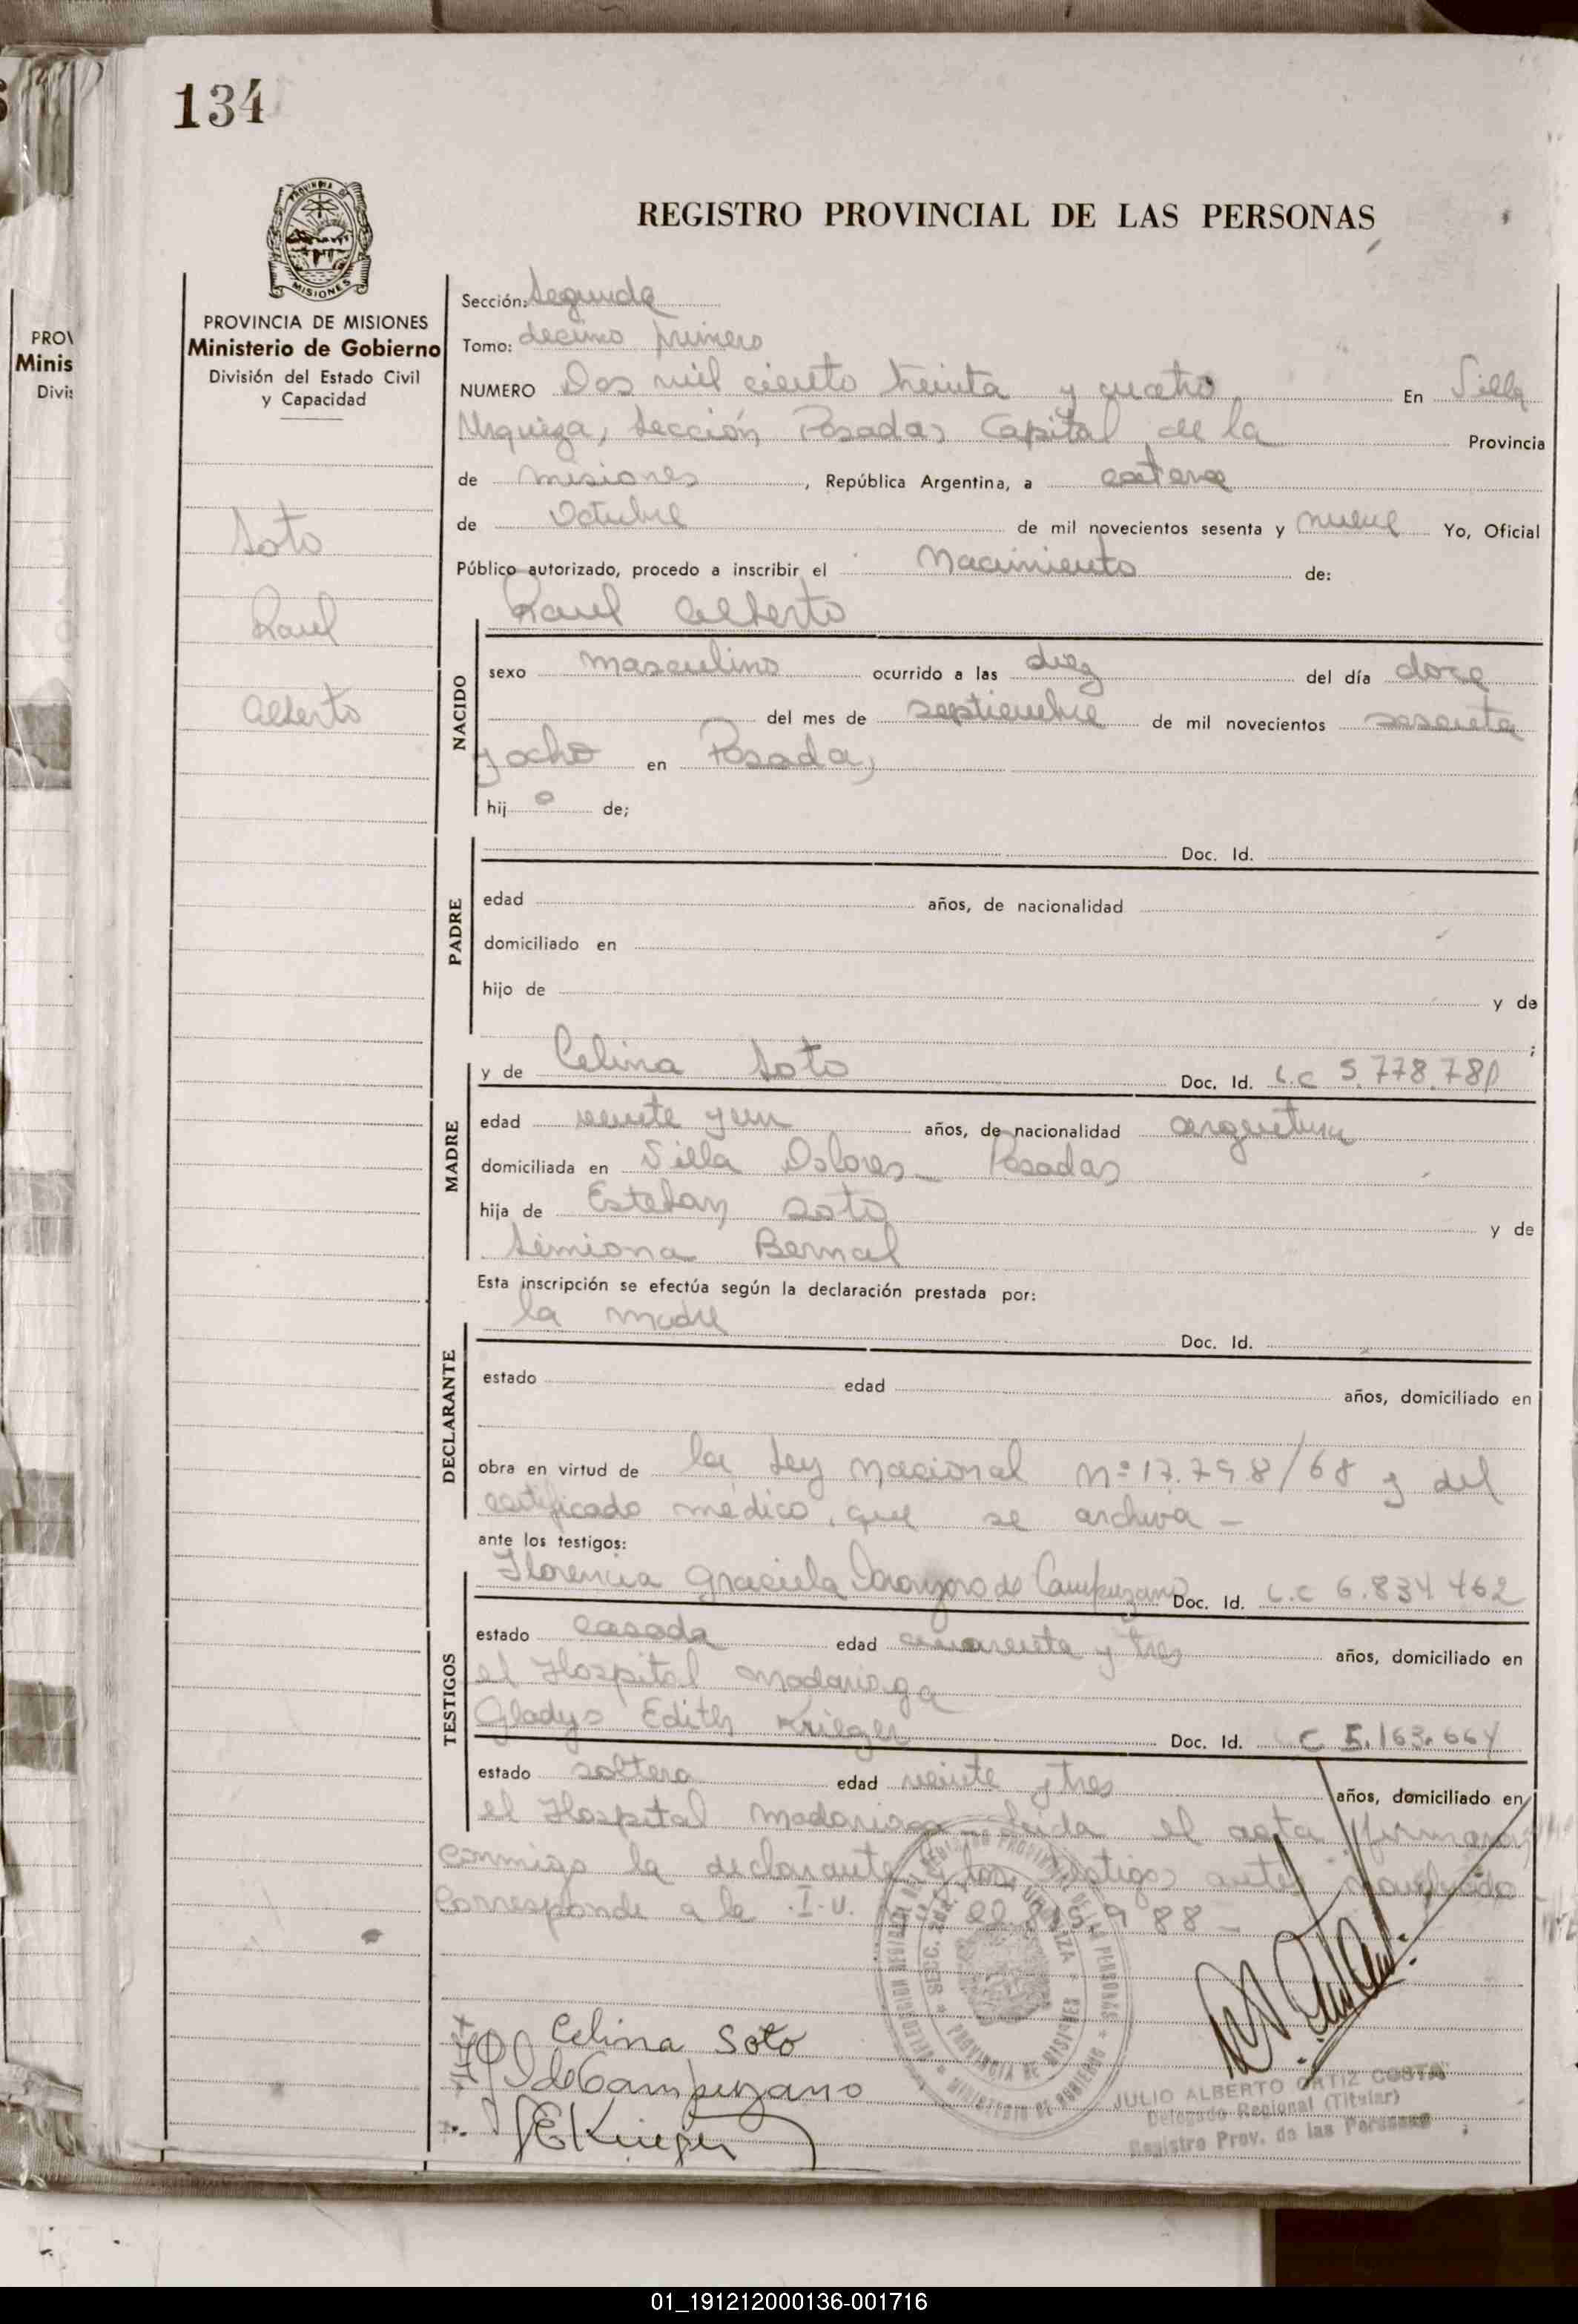 134
PROVINCIA DE MISIONES
Ministerio de Gobierno
División del Estado Civil
y Capacidad
Soto
Raul
Alberto
REGISTRO PROVINCIAL DE LAS PERSONAS
Sección: Segunda
Tomo: decimo primero
NUMERO Dos mil ciento treinta y cuatro En Villa
Urquiza, Sección Posadas Capital de la Provincia
de Misiones, República Argentina, a catorce
de Octubre de mil novecientos sesenta y nueve Yo, Oficial
Público autorizado, procedo a inscribir el Nacimiento de:
Raul Alberto
NACIDO
sexo masculino ocurrido a las diez del día doce
del mes de septiembre de mil novecientos sesenta
y ocho en Posadas
hij o de;
PADRE
Doc. Id.
edad años, de nacionalidad
domiciliado en
hijo de y de
;
MADRE
y de Celina Soto Doc. Id. L.C 5.778.781
edad veinte y un años, de nacionalidad argentina
domiciliada en Villa Dolores - Posadas
hija de Esteban Soto y de
Simiona Bernal
Esta inscripción se efectúa según la declaración prestada por:
DECLARANTE
la madre Doc. Id.
estado edad años, domiciliado en
obra en virtud de la Ley Nacional Nº 17.798/68 y del
certificado médico, que se archiva -
ante los testigos:
TESTIGOS
Florencia Graciela de Campuzano Doc. Id. L.C 6.834 462
estado casada edad cuarenta y tres años, domiciliado en
el Hospital Madariaga
Gladys Edith Krieger Doc. Id. L C 5.163.664
estado soltera edad veinte y tres años, domiciliado en
el Hospital Madariaga - Leida el acta firmaron
conmigo la declarante y los testigos antes nombrado
Corresponde a la I.U.
Celina Soto
de Campuzano
GEKrieger
JULIO ALBERTO ORTIZ COSTA
Delegado Regional (Titular)
Registro Prov. de las Personas
PROV
Minis
Divi:
01_191212000136-001716